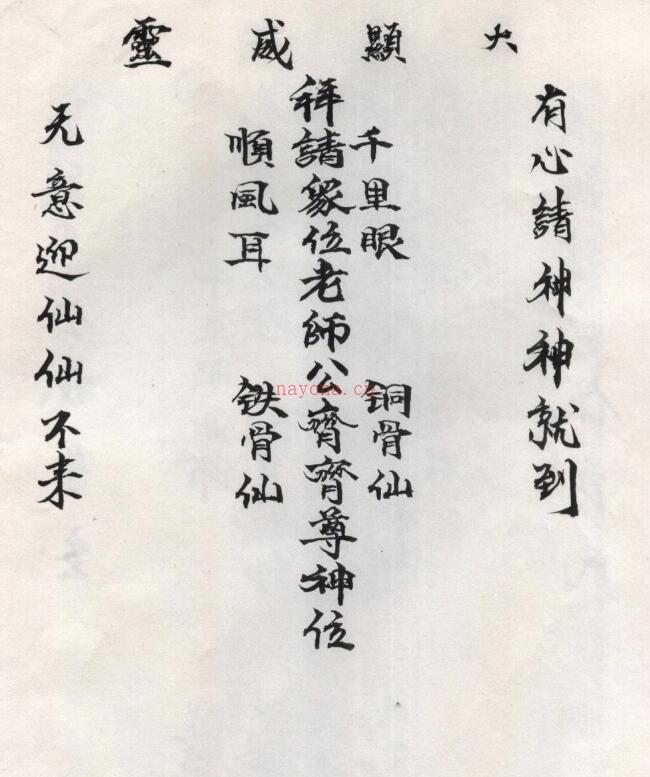 火顯威靈
有心請神神就到
千里眼
銅骨仙
拜請眾位老師公齊齊尊神位
順風耳
鉄骨仙
无意迎仙仙不来
nayona.cn